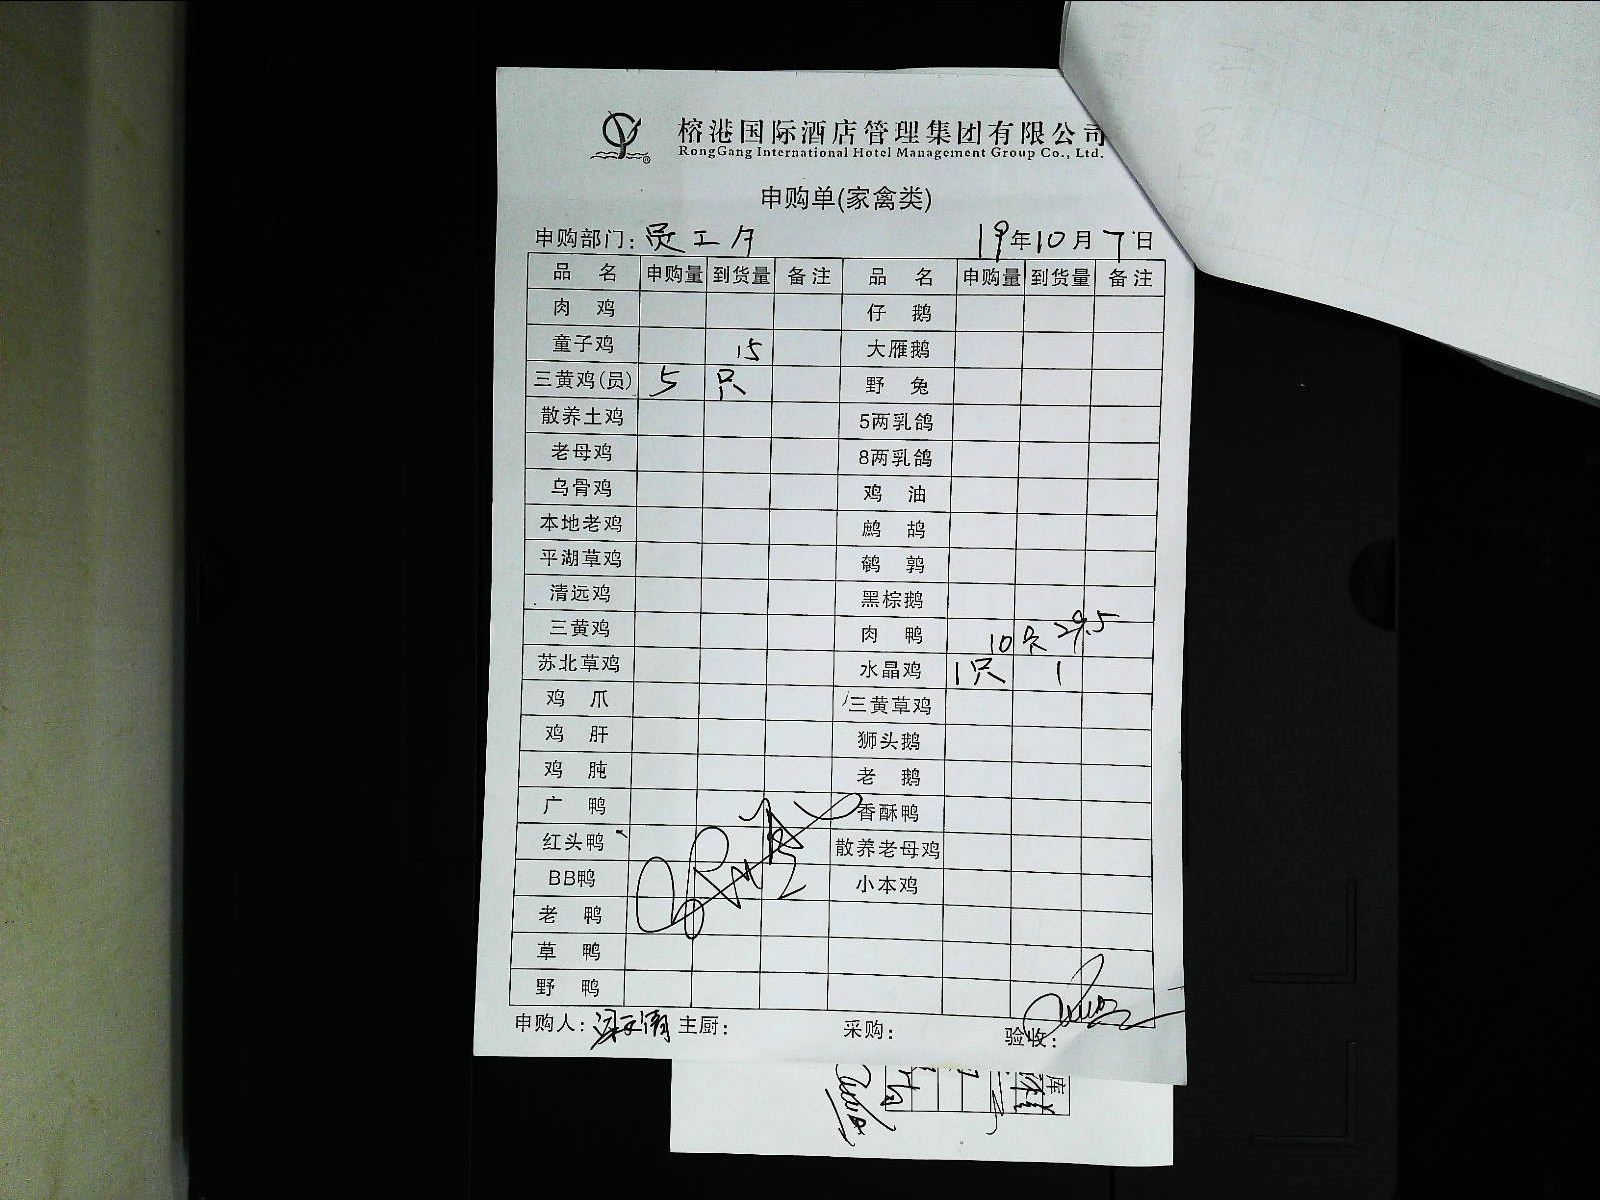 榕港国际酒店管理集团有限公司
RongGang International Hotel Management Group Co., Ltd.
申购单(家禽类)
申购部门: 员工 19年10月7日
品 名 申购量 到货量 备注 品 名 申购量 到货量 备注
肉 鸡 仔 鹅
童子鸡 15 大雁鹅
三黄鸡(员) 5 只 野 兔
散养土鸡 5两乳鸽
老母鸡 8两乳鸽
乌骨鸡 鸡 油
本地老鸡 鹧 鸪
平湖草鸡 鹌 鹑
清远鸡 黑棕鹅
三黄鸡 肉 鸭 10只 29.5
苏北草鸡 水晶鸡 1只 1
鸡 爪 三黄草鸡
鸡 肝 狮头鹅
鸡 肫 老 鹅
广 鸭 香酥鸭
红头鸭 散养老母鸡
BB鸭 小本鸡
老 鸭
草 鸭
野 鸭
申购人: 主厨: 采购: 验收:
库